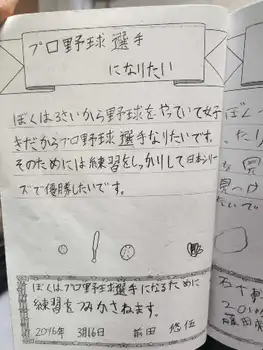 プロ野球選手
になりたい
ぼくは3さいから野球をやっていて好
きだからプロ野球選手なりたいです。
そのためには練習をしっかりして日本シリー
ズで優勝したいです。
ぼくはプロ野球選手になるために
練習をつみかさねます。
2016年 3月16日 前田 悠伍